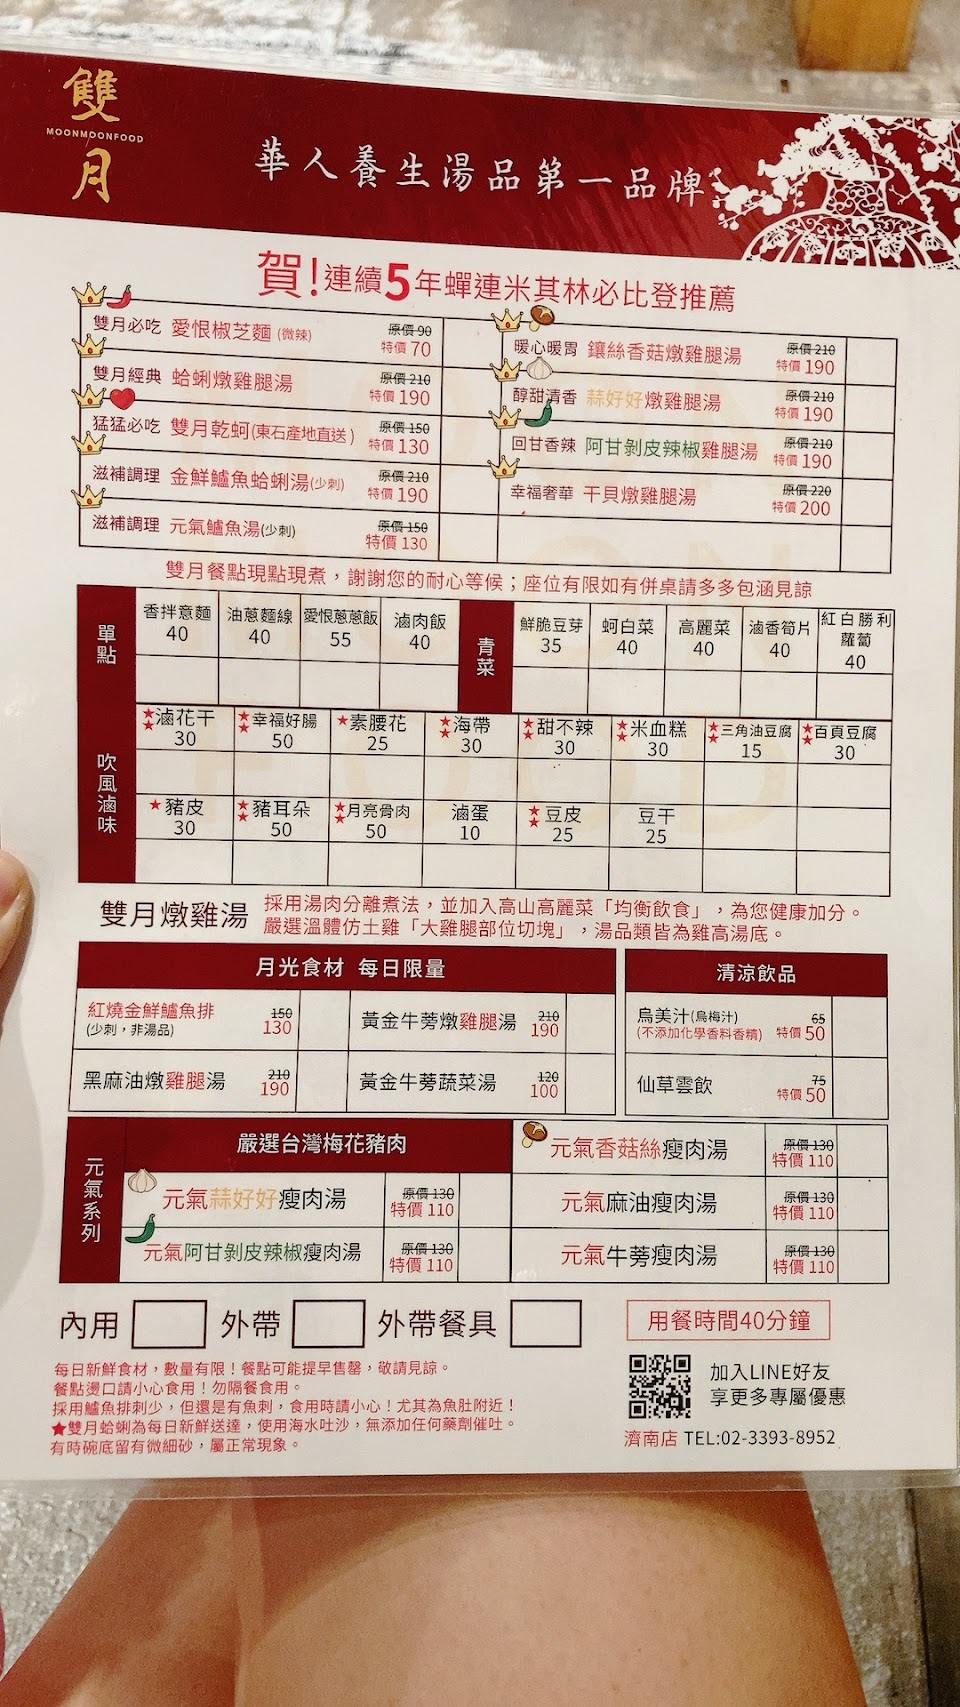 雙月
MOONMOONFOOD
華人養生湯品第一品牌
賀!連續5年蟬連米其林必比登推薦
雙月必吃 愛恨椒芝麵 (微辣) 原價 90 特價 70
雙月經典 蛤蜊燉雞腿湯 原價 210 特價 190
猛猛必吃 雙月乾蚵(東石產地直送) 原價 150 特價 130
滋補調理 金鮮鱸魚蛤蜊湯(少刺) 原價 210 特價 190
滋補調理 元氣鱸魚湯(少刺) 原價 150 特價 130
暖心暖胃 鑲絲香菇燉雞腿湯 原價 210 特價 190
醇甜清香 蒜好好燉雞腿湯 原價 210 特價 190
回甘香辣 阿甘剝皮辣椒雞腿湯 原價 210 特價 190
幸福奢華 干貝燉雞腿湯 原價 220 特價 200
雙月餐點現點現煮，謝謝您的耐心等候；座位有限如有併桌請多多包涵見諒
單點
香拌意麵 40
油蔥麵線 40
愛恨蔥蔥飯 55
滷肉飯 40
青菜
鮮脆豆芽 35
蚵白菜 40
高麗菜 40
滷香筍片 40
紅白勝利蘿蔔 40
吹風滷味
★★滷花干 30
★★幸福好腸 50
★素腰花 25
★★海帶 30
★★甜不辣 30
★★米血糕 30
★★三角油豆腐 15
★★百頁豆腐 30
★豬皮 30
★★豬耳朵 50
★★月亮骨肉 50
滷蛋 10
★★豆皮 25
豆干 25
雙月燉雞湯
採用湯肉分離煮法，並加入高山高麗菜「均衡飲食」，為您健康加分。
嚴選溫體仿土雞「大雞腿部位切塊」，湯品類皆為雞高湯底。
月光食材 每日限量
紅燒金鮮鱸魚排 (少刺，非湯品) 150 130
黃金牛蒡燉雞腿湯 210 190
黑麻油燉雞腿湯 210 190
黃金牛蒡蔬菜湯 120 100
清涼飲品
烏美汁(烏梅汁) 65
(不添加化學香料香精) 特價 50
仙草雲飲 75 特價 50
元氣系列
嚴選台灣梅花豬肉
元氣蒜好好瘦肉湯 原價 130 特價 110
元氣阿甘剝皮辣椒瘦肉湯 原價 130 特價 110
元氣香菇絲瘦肉湯 原價 130 特價 110
元氣麻油瘦肉湯 原價 130 特價 110
元氣牛蒡瘦肉湯 原價 130 特價 110
內用 外帶 外帶餐具
用餐時間40分鐘
每日新鮮食材，數量有限！餐點可能提早售罄，敬請見諒。
餐點燙口請小心食用！勿隔餐食用。
採用鱸魚排刺少，但還是有魚刺，食用時請小心！尤其為魚肚附近！
★雙月蛤蜊為每日新鮮送達，使用海水吐沙，無添加任何藥劑催吐。
有時碗底留有微細砂，屬正常現象。
加入LINE好友
享更多專屬優惠
濟南店 TEL:02-3393-8952